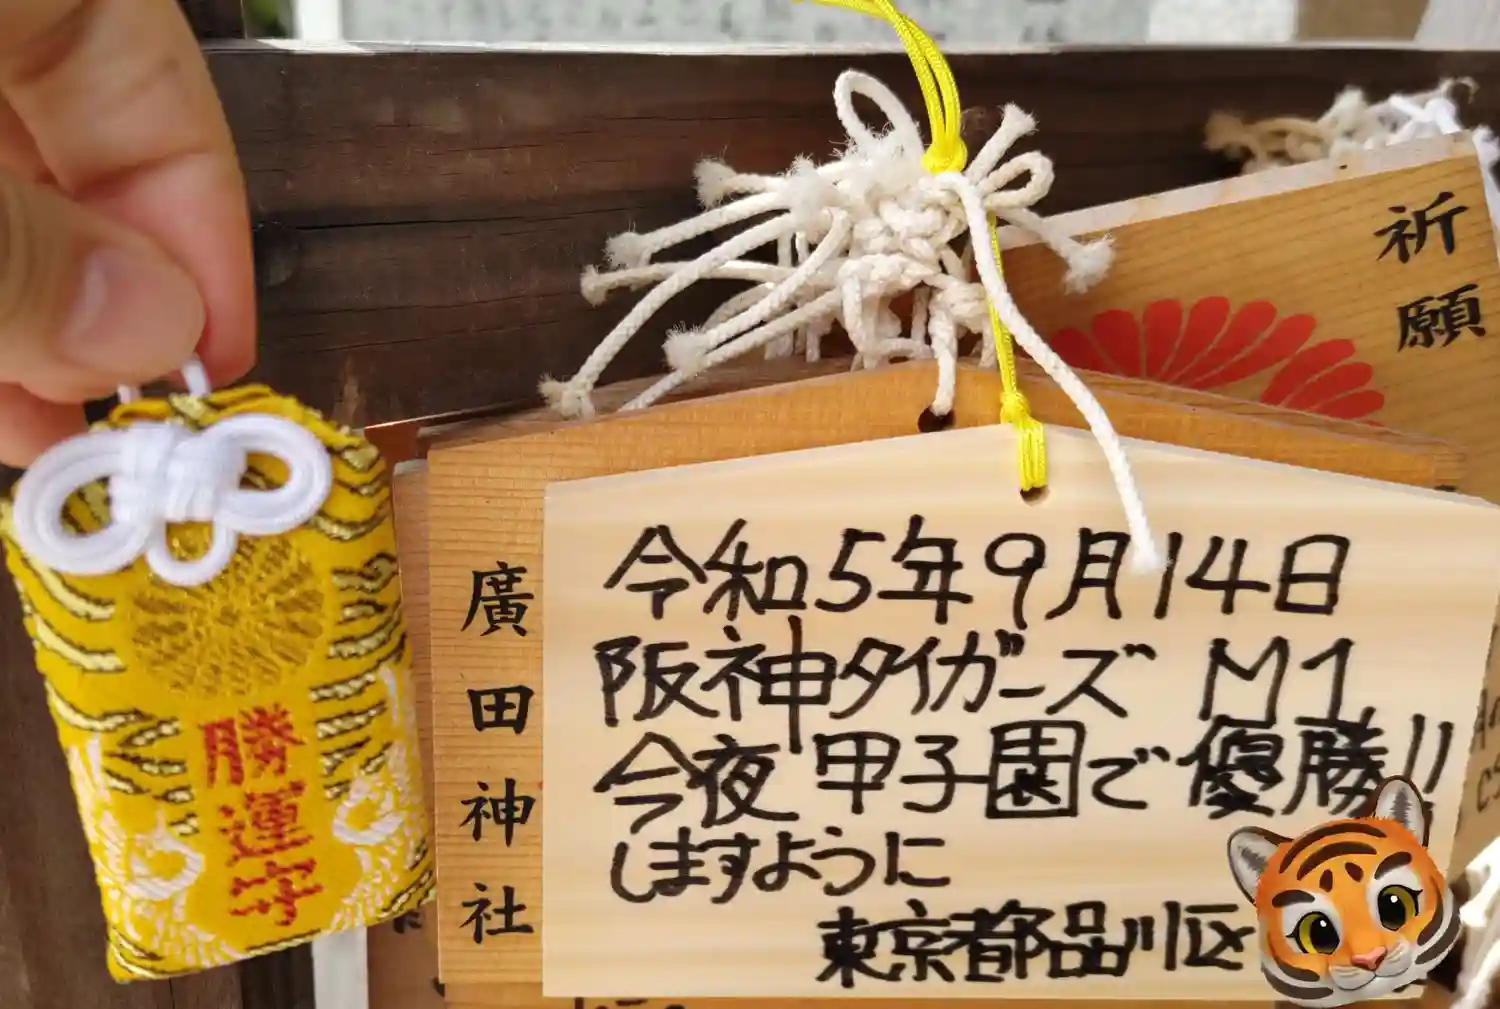 勝運守
廣田神社
祈願
令和5年9月14日
阪神タイガーズ M1
今夜甲子園で優勝!!
しますように
東京都品川区